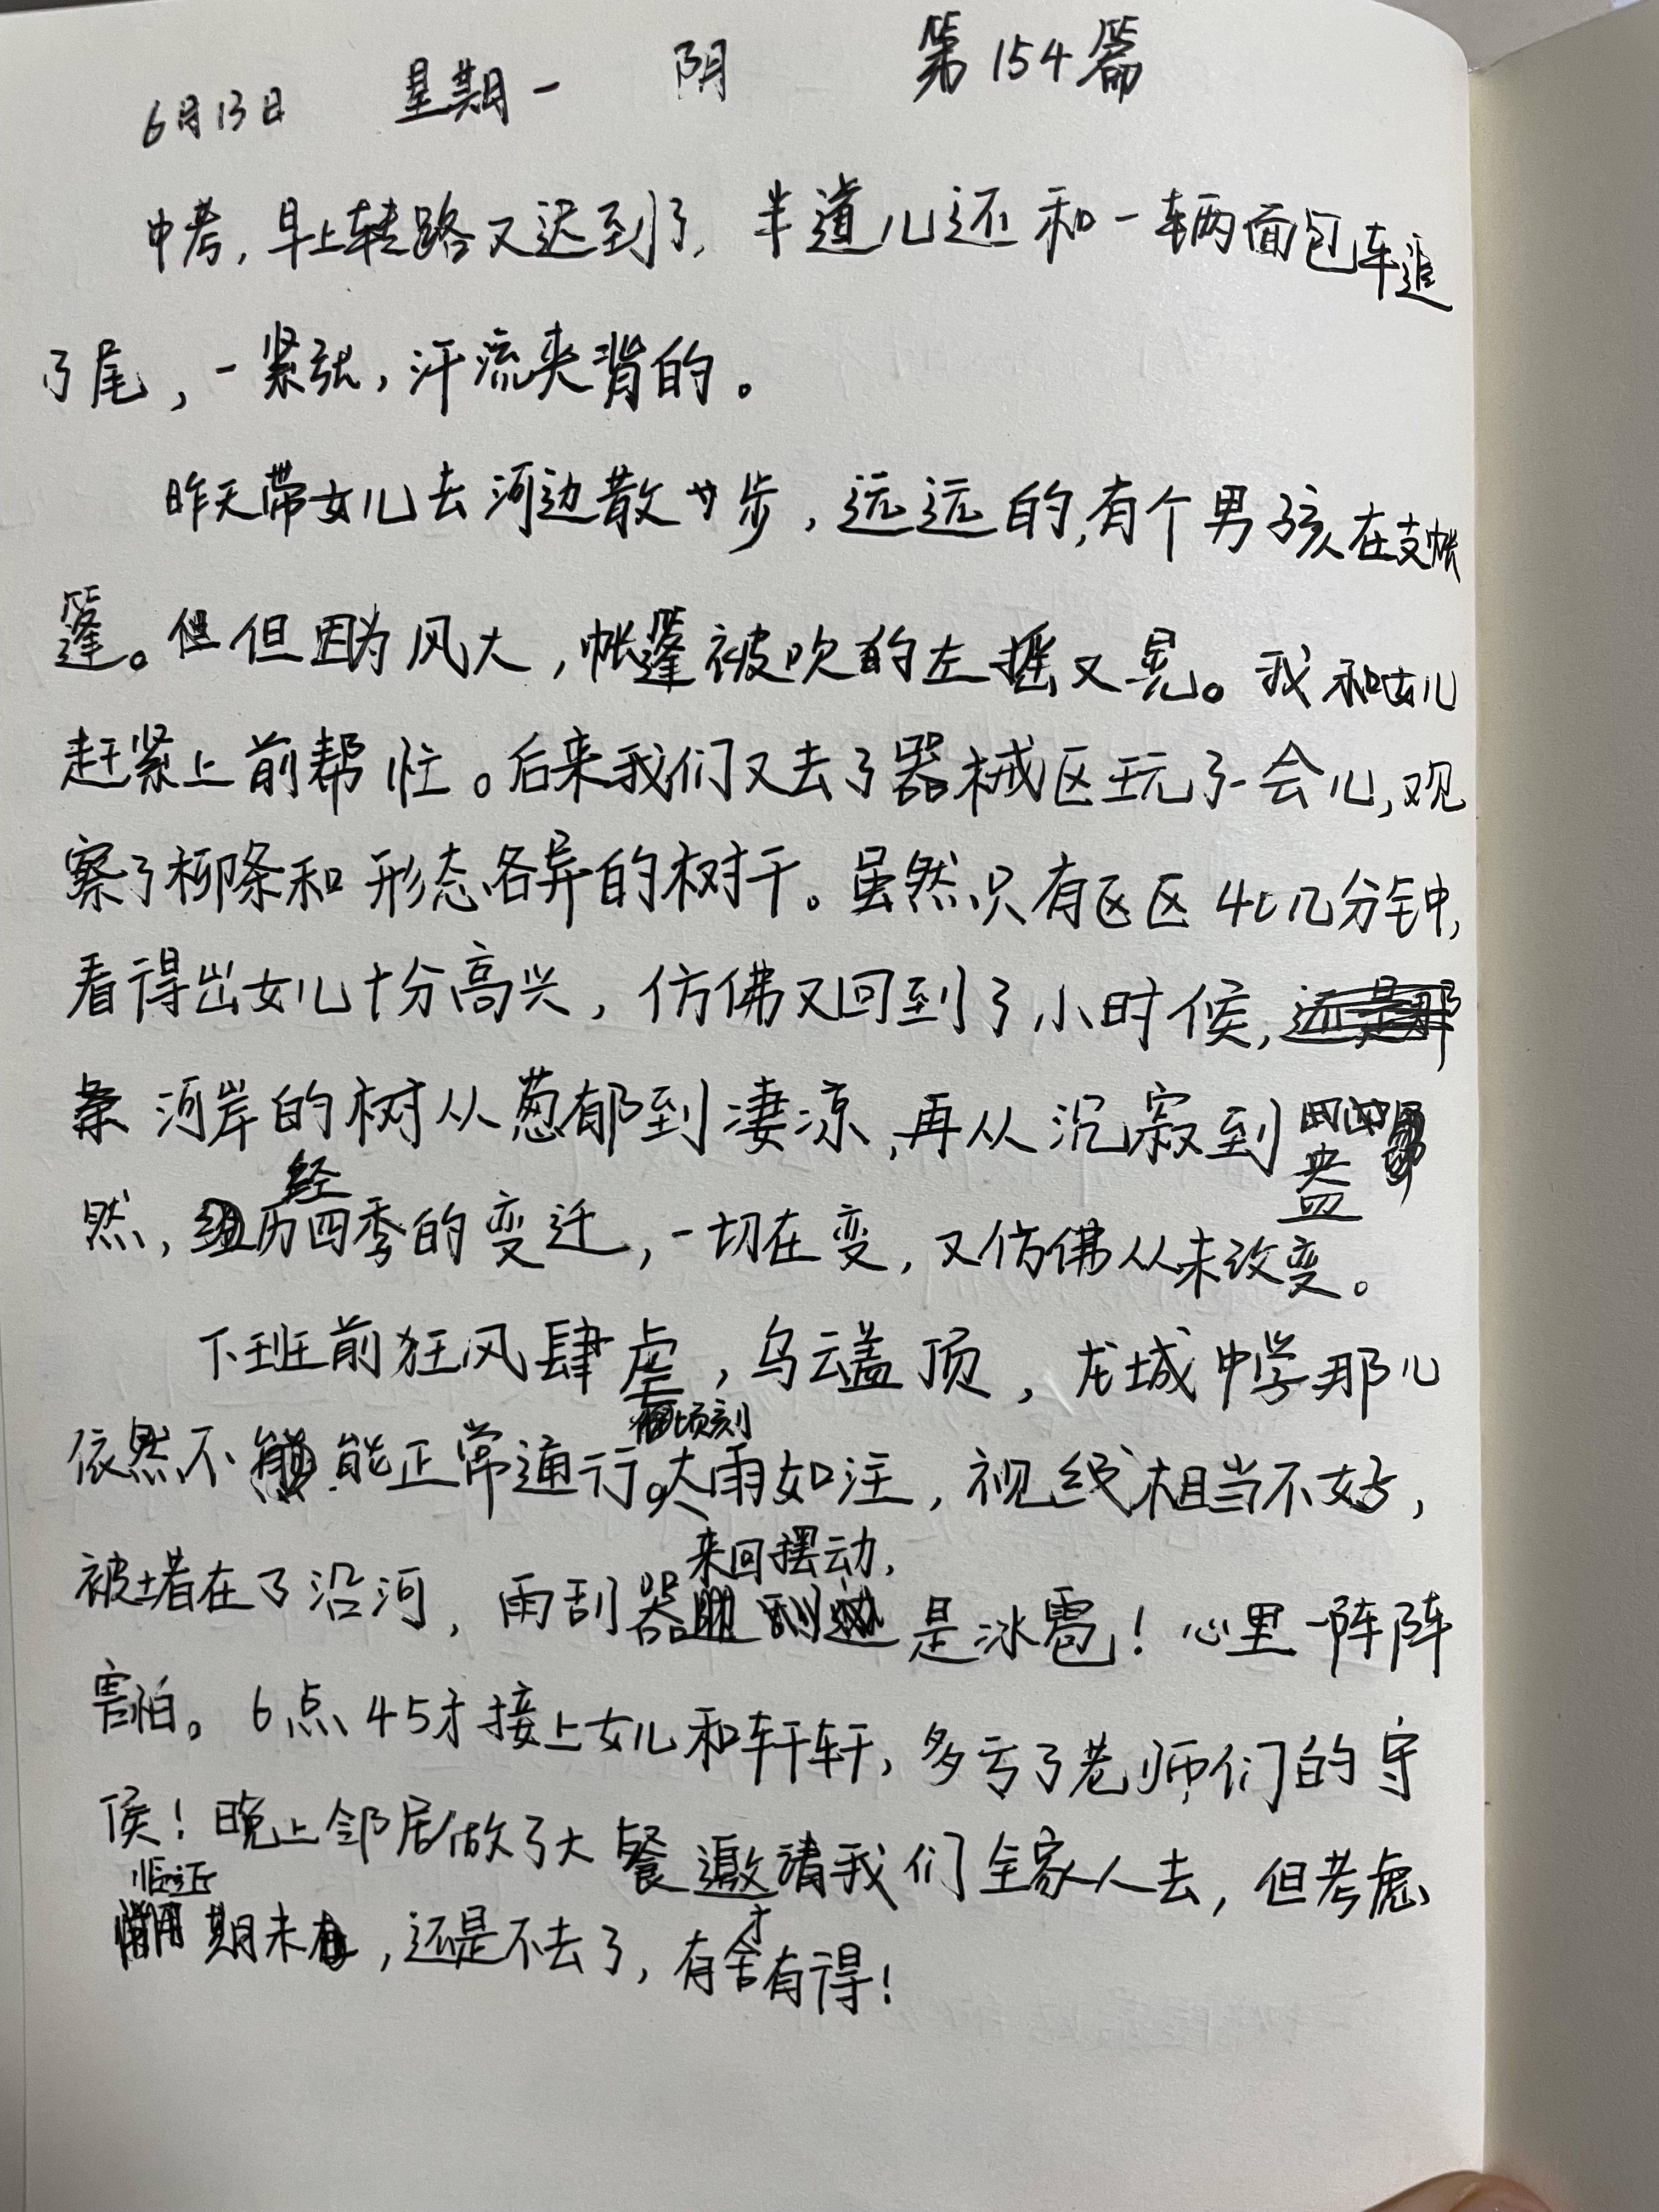 6月13日 星期一 阴 第154篇
中考,早上转路又迟到了,半道儿还和一辆面包车追
了尾,一紧张,汗流夹背的。
昨天带女儿去河边散散步,远远的,有个男孩在支帐
篷。但但因为风大,帐篷被吹的左摇又晃。我和女儿
赶紧上前帮忙。后来我们又去了器械区玩了一会儿,观
察了柳条和形态各异的树干。虽然只有区区40几分钟,
看得出女儿十分高兴,仿佛又回到了小时候,
河岸的树从葱郁到凄凉,再从沉寂到盎
然,经历四季的变迁,一切在变,又仿佛从未改变。
下班前狂风肆虐,乌云盖顶,龙城中学那儿
依然不能正常通行。顷刻大雨如注,视线相当不好,
被堵在了沿河,雨刮器来回摆动,是冰雹!心里一阵阵
害怕。6点45才接上女儿和轩轩,多亏了老师们的守
侯!晚上邻居做了大餐邀请我们全家人去,但考虑
临近期末,还是不去了,有舍才有得!